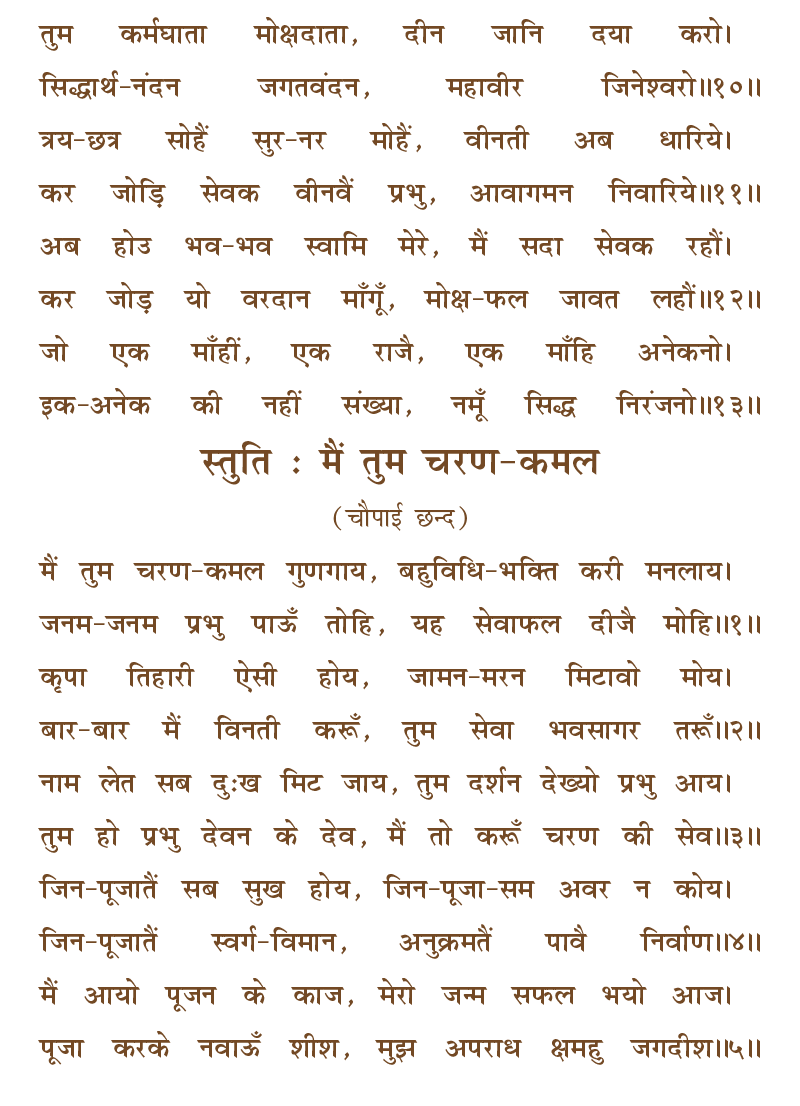 तुम कर्मघाता मोक्षदाता, दीन जानि दया करो।
सिद्धार्थ-नंदन जगतवंदन, महावीर जिनेश्वरो॥१०॥
त्रय-छत्र सोहैं सुर-नर मोहैं, वीनती अब धारिये।
कर जोड़ि सेवक वीनवैं प्रभु, आवागमन निवारिये॥११॥
अब होउ भव-भव स्वामि मेरे, मैं सदा सेवक रहौं।
कर जोड़ यो वरदान माँगूँ, मोक्ष-फल जावत लहौं॥१२॥
जो एक माँहीं, एक राजै, एक माँहि अनेकनो।
इक-अनेक की नहीं संख्या, नमूँ सिद्ध निरंजनो॥१३॥
स्तुति : मैं तुम चरण-कमल
(चौपाई छन्द)
मैं तुम चरण-कमल गुणगाय, बहुविधि-भक्ति करी मनलाय।
जनम-जनम प्रभु पाऊँ तोहि, यह सेवाफल दीजै मोहि॥१॥
कृपा तिहारी ऐसी होय, जामन-मरन मिटावो मोय।
बार-बार मैं विनती करूँ, तुम सेवा भवसागर तरूँ॥२॥
नाम लेत सब दुःख मिट जाय, तुम दर्शन देख्यो प्रभु आय।
तुम हो प्रभु देवन के देव, मैं तो करूँ चरण की सेव॥३॥
जिन-पूजातैं सब सुख होय, जिन-पूजा-सम अवर न कोय।
जिन-पूजातैं स्वर्ग-विमान, अनुक्रमतैं पावै निर्वाण॥४॥
मैं आयो पूजन के काज, मेरो जन्म सफल भयो आज।
पूजा करके नवाऊँ शीश, मुझ अपराध क्षमहु जगदीश॥५॥